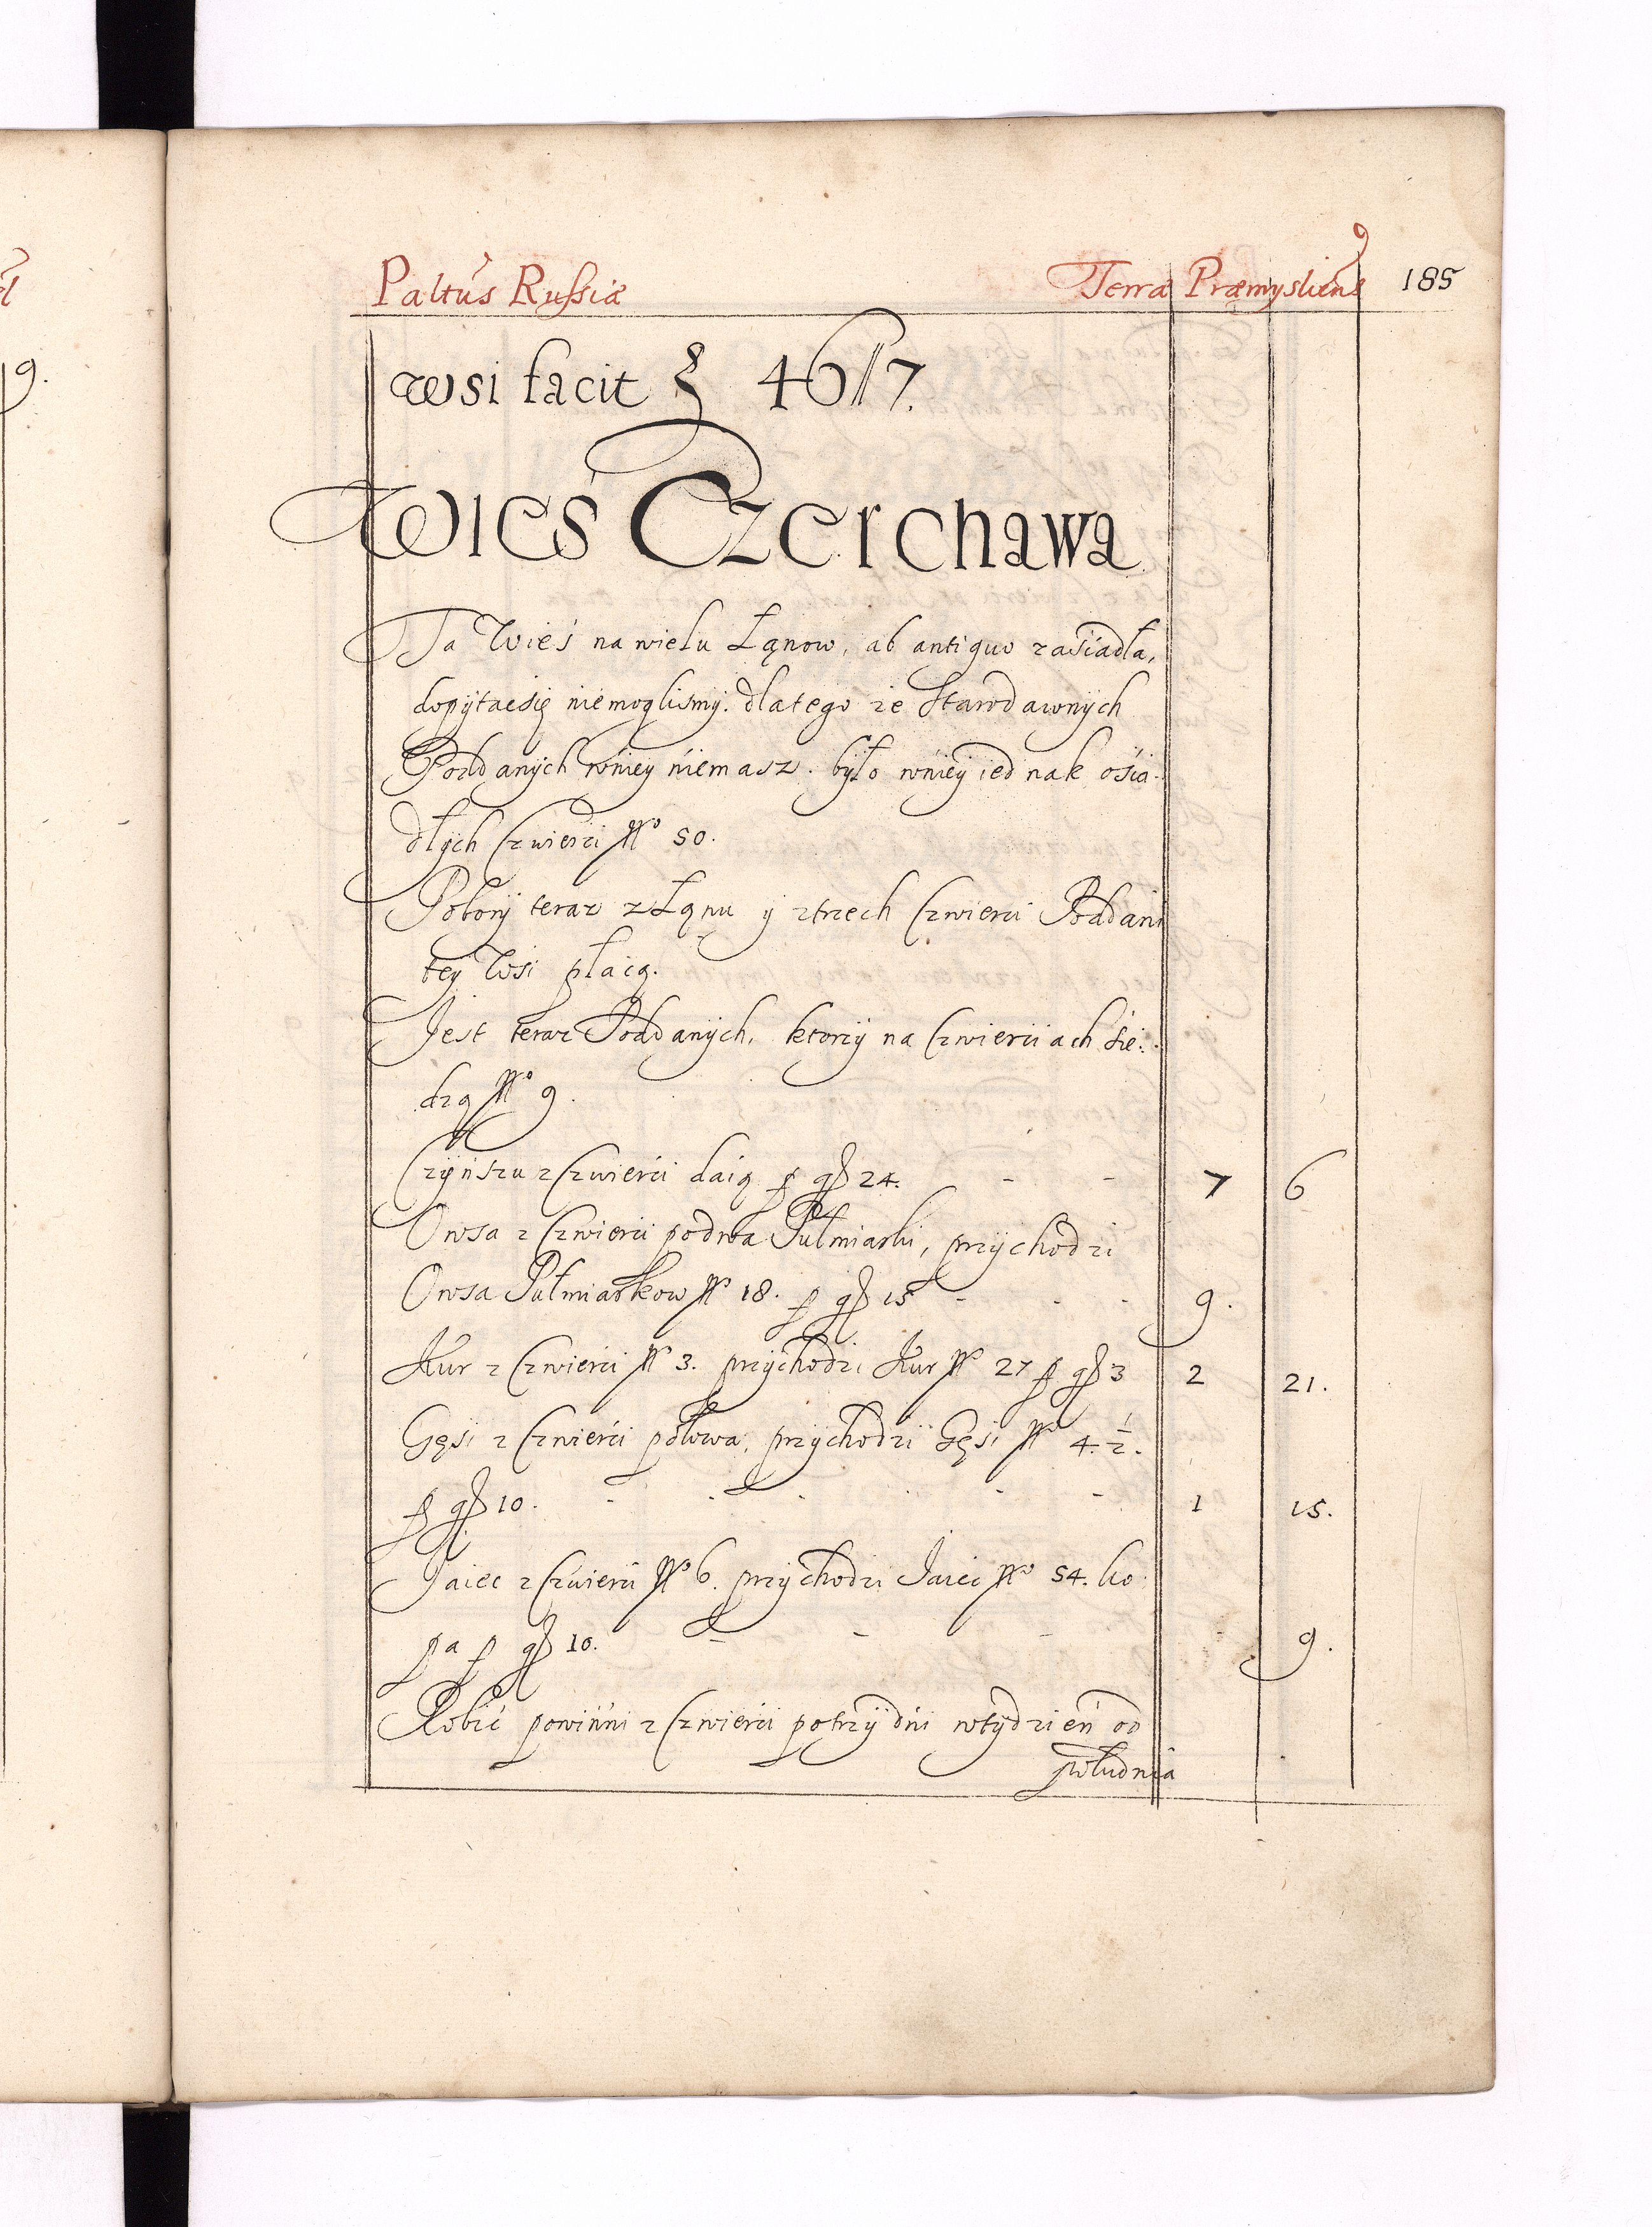 Paltus Russiæ Terra Præmysliens 185
wsi facit ꝟ 46//7.
Wieś Czerchawa
Ta Wieś na wielu Łąnow, ab antiquo zasiadła,
dopÿtaćsię niemogliśmÿ. dlatego że Starodawnÿch
Poddanÿch wniey niemasz. bÿło wnieÿ iednak ośia-
dłÿch Czwierći Nº 50.
Poborÿ teraz z Łąnu ÿ ztrzech Czwierći Poddani
teÿ Wsi płacą.
Jest teraz Poddanÿch, ktorzÿ na Czwierćiach śie-
dzą Nº 9.
Czÿnszu z Czwierći daią p gß 24. - - 7 6
Owsa z Czwierći podwa Pułmiarki, przÿchodzi
Owsa Pułmiarkow Nº 18. p gß 15 - - - 9.
Kur z Czwierći Nº 3. przÿchodzi Kur Nº 27 p gß 3 2 21.
Gęsi z Czwierći połowa, przÿchodzi Gęsi Nº 4. ½.
p gß 10. - - - - - - 1 15.
Jaiec z Czwierći Nº 6. przÿchodzi Jaiec Nº 54. ko-
pa p gß 10. - - - - 9.
Robić powinni z Czwierći potrzÿ dni wtÿdzień od
południa
9.